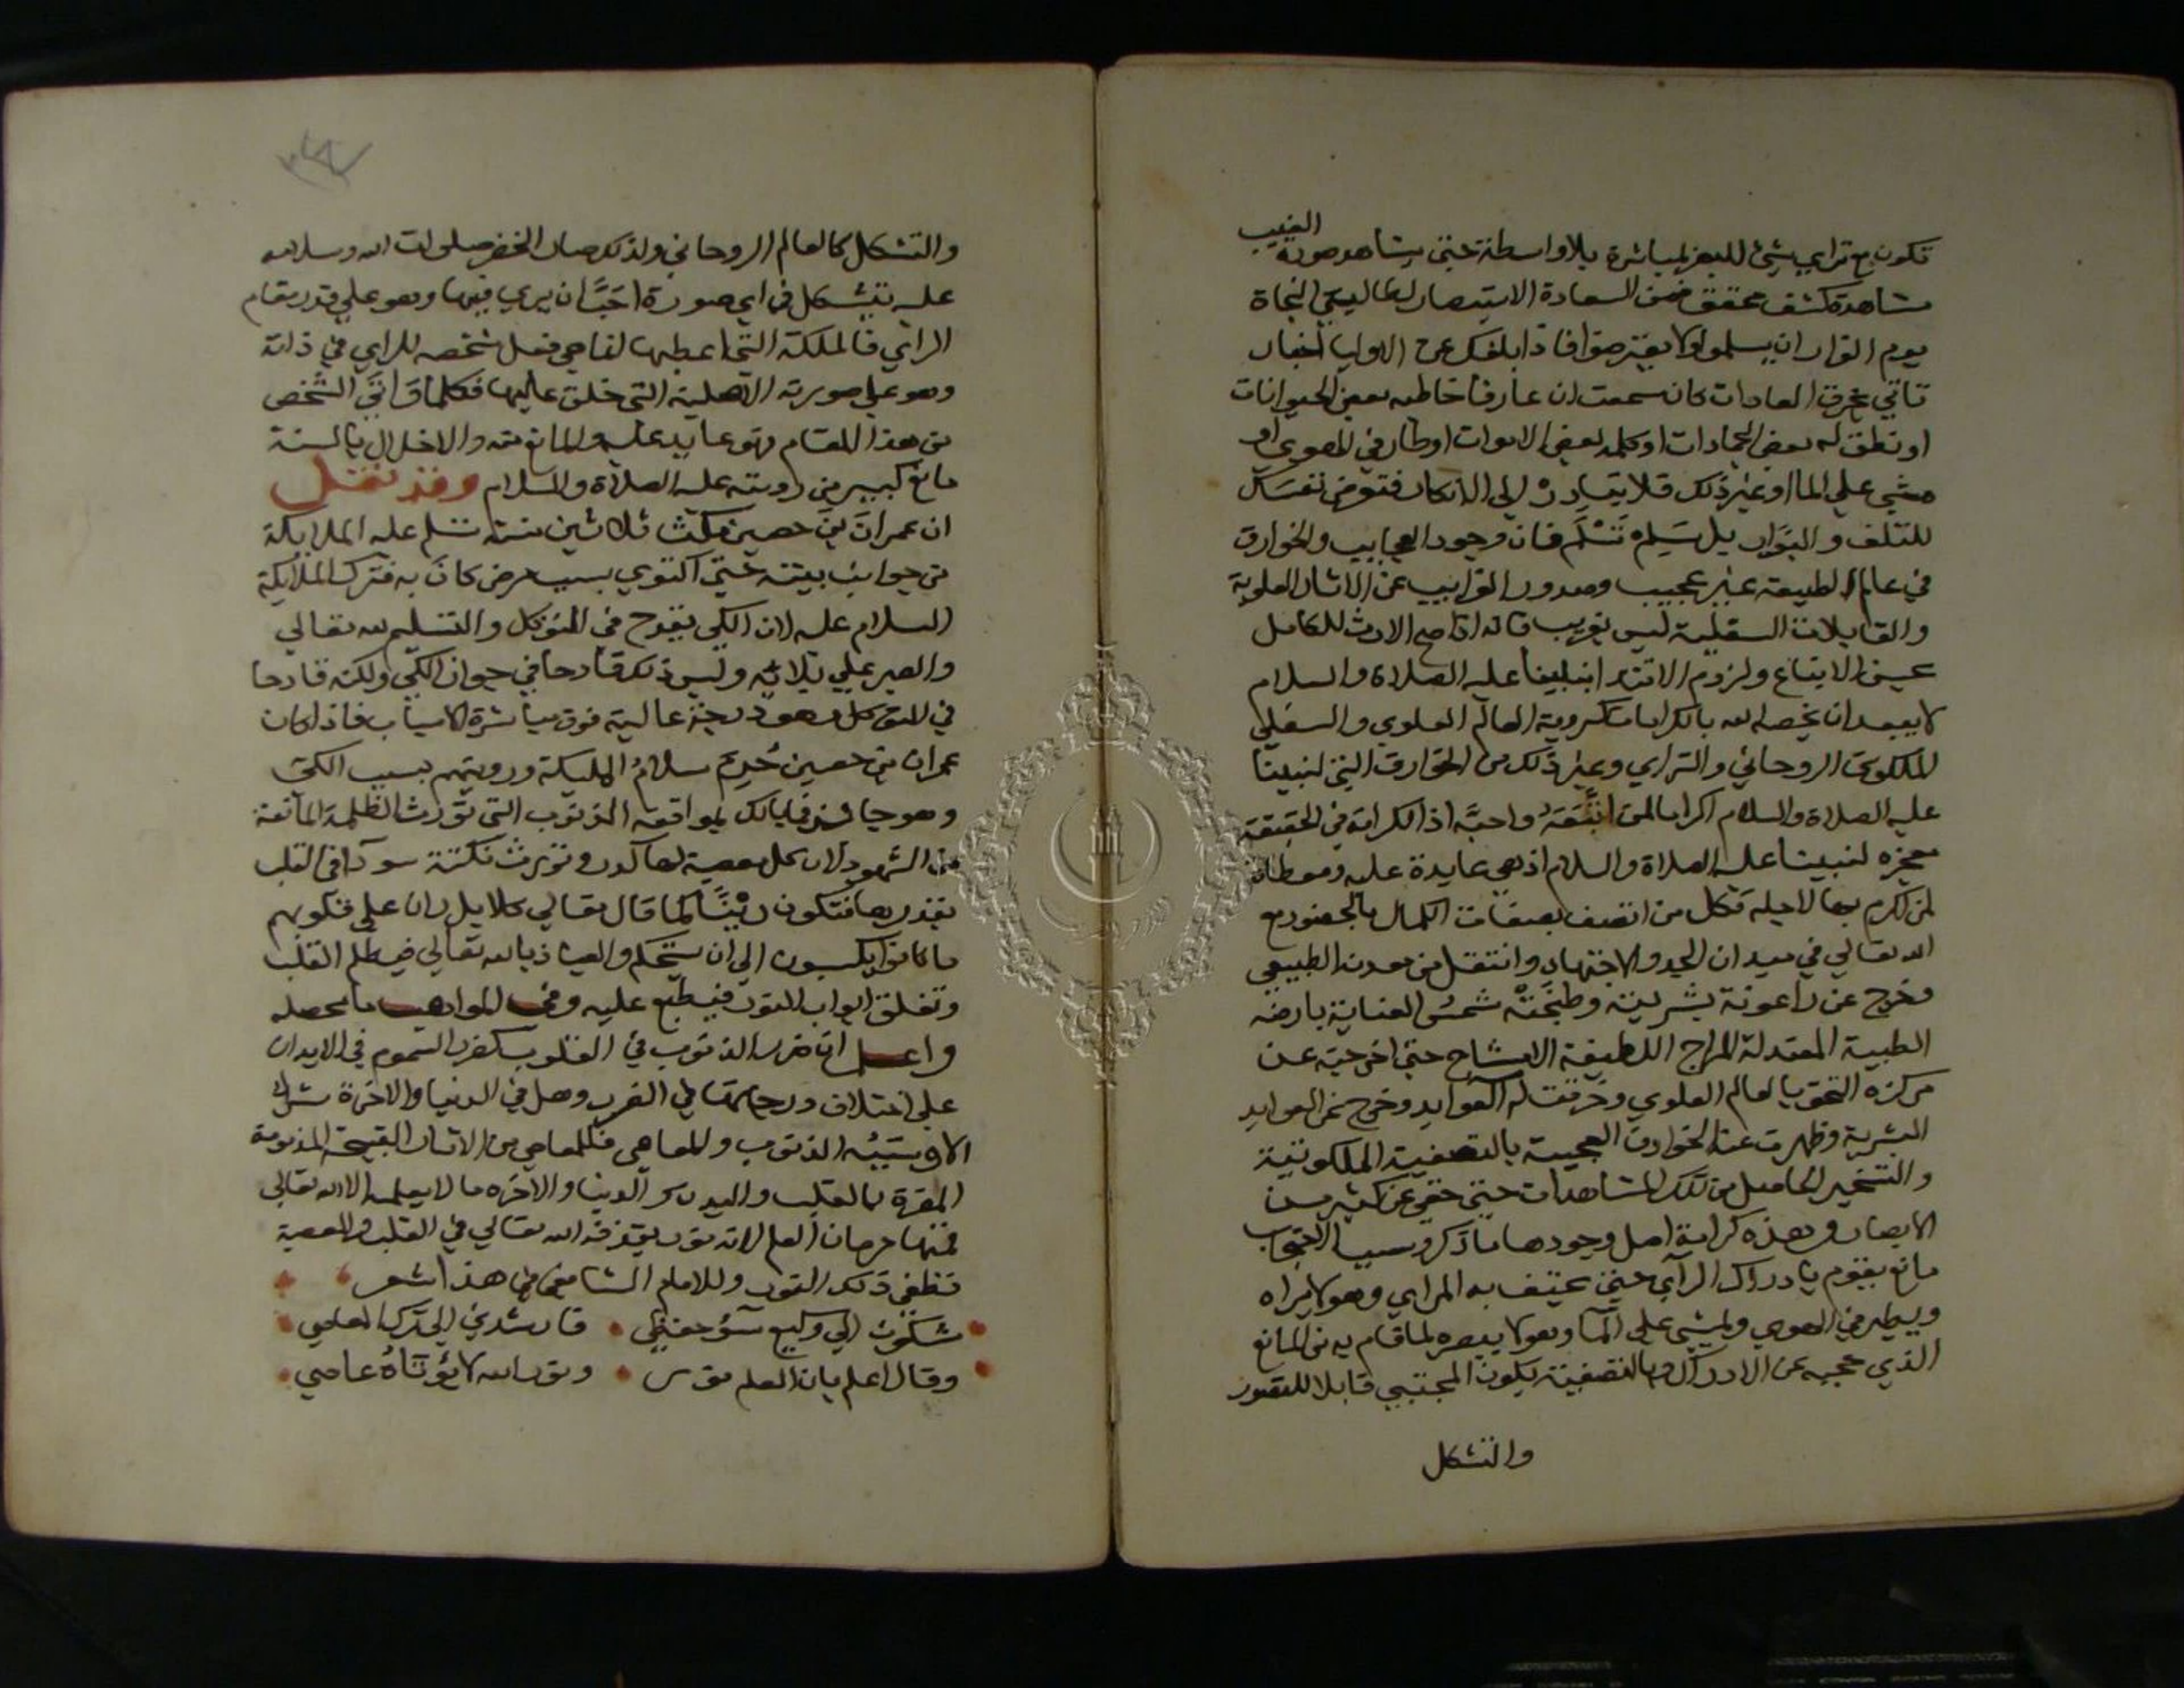 الغيب
تكون مع تراي شيئ للبصر لمباشرة بلا واسطة حتى يشاهد صورة
مشاهدة كشف محقق فمن السعادة الاستبصار لطالبي النجاة
يوم القرار ان يسلموا ولا يغتر صوا فاذا بلغك عن الاوليا اخبار
تاتي بخرق العادات كان سمعت ان عارفا خاطبه بعض الحيوانات
او نطق له بعض الجمادات او كلمه بعض الاموات او طار في الهوي او
مشي علي الما او غير ذلك فلا تبادر الي الانكار فتعرض نفسك
للتلف والبوار بل سلم تسلم فان وجود العجايب والخوارق
في عالم الطبيعة غير عجيب وصدور الغرايب عن الاثار العلوية
والقابلات السفلية ليس بغريب فانه اذا صح الارث للكامل
بحسن الاتباع ولزوم الاقتدا بنبينا عليه الصلاة والسلام
لا يبعد ان يخصه الله بالكرامات كروية العالم العلوي والسفلي
الملكوتي الروحاني والتراي وغير ذلك من الخوارق التي لنبينا
عليه الصلاة والسلام اكراما لمن اتبعه واحبه اذ الكرامة في الحقيقة
معجزه لنبينا عليه الصلاة والسلام اذ هي عايدة عليه ومعطاة
لمن اكرم بها لاجله فكل من اتصف بصفات الكمال بالحضور مع
الله تعالي في ميدان الجد والاجتهاد وانتقل من معدنه الطبيعي
وخرج عن راعونة بشريته وطبخته شمس العناية بارضه
الطيبة المعتدلة المزاج اللطيفة الامشاج حتى اخرجته عن
مركزه التحق بالعالم العلوي وخرقت له العوايد وخرج عن العوايد
البشرية وظهرت عنه الخوارق العجيبة بالتصفية الملكوتية
والتسخير الحاصل من تلك المشاهدات حتى خفي عن كثير من
الابصار وهذه كرامة اصل وجودها ما ذكر وسبب الاحتجاب
مانع يقوم بادراك الراي حتى يحتف به المراي وهو لا يراه
ويطير في الهوي ويمشي علي الما وهو لا يبصره لما قام به من المانع
الذي حجبه عن الادراك وبالتصفية يكون المجتبي قابلا للتصور
والتشكل
والتشكل كالعالم الروحاني ولذلك صار الخضر صلوات الله وسلامه
عليه يتشكل في اي صورة احب ان يري فيها وهو علي قدر مقام
الراي فالملكة التي اعطيها لفا هي فعل شخصه للراي في ذاته
وهو علي صورته الاصلية التي خلق عليها فكلما قام الشخص
من هذا المقام فهو عايد عليه والمانع منه والاخلال بالسنة
مانع كبير من رويته عليه الصلاة والسلام وقد نقل
ان عمران بن حصين مكث ثلاثين سنة تسلم عليه الملايكة
من جوانب بيته حتى اكتوي بسبب مرض كان به فترك الملايكة
السلام عليه لان الكي يقدح في التوكل والتسليم لله تعالي
والصبر علي بلائه وليس ذلك قادحا في جواز الكي ولكنه قادحا
في التوكل وهو درجة عالية فوق مباشرة الاسباب فاذا كان
عمران بن حصين حرم سلام المليكة ورويتهم بسبب الكي
وهو جايز فما بالك بمواقعه الذنوب التي تورث الظلمة المانعة
من الشهود لان كل معصية لها كدر وتورث نكتة سودا في القلب
بقدرها فتكون رينا كما قال تعالي كلا بل ران علي قلوبهم
ما كانوا يكسبون الي ان يستحكم والعياذ بالله تعالي فيظلم القلب
وتغلق ابواب النور فيطبع عليه وفي المواهب ما محصله
واعلم ان ضرر الذنوب في القلوب كضرر السموم في الابدان
علي اختلاف درجاتها في الضرر وهل في الدنيا والاخرة شر
الا وسببه الذنوب والمعاصي فللمعاصي من الاثار القبيحة المذمومة
المضرة بالقلب والبدن والدنيا والاخره ما لا يعلمه الا الله تعالي
فمنها حرمان العلم لانه نور يقذفه الله تعالي في القلب والمعصية
تطفي ذلك النور وللامام الشافعي في هذا شعر
شكوت الي وكيع سوء حفظي • فارشدني الي ترك المعاصي
وقال اعلم بان العلم نور • ونور الله لا يؤتاه عاصي